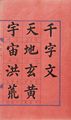 千字文
天地玄黃
宇宙洪荒